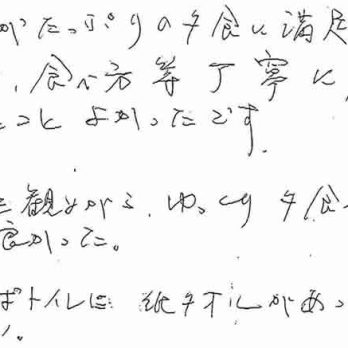 がたっぷりの夕食に満足
、食べ方等丁寧に
ことよかったです.
を観ながら、ゆっくり夕食
良かった。
ばトイレに紙タオルがあっ
い。